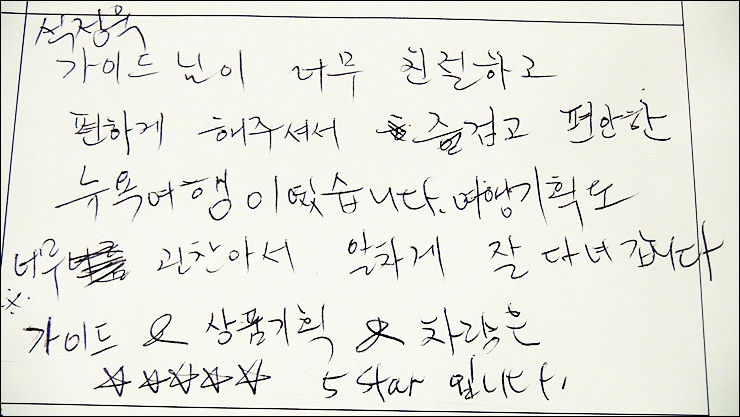 석정욱
가이드님이 너무 친절하고
편하게 해주셔서 즐겁고 편안한
뉴욕여행이었습니다. 여행기획도
너무 괜찬아서 알차게 잘 다녀갑니다
※.
가이드 & 상품기획 & 차량은
☆☆☆☆☆ 5 Star 입니다.